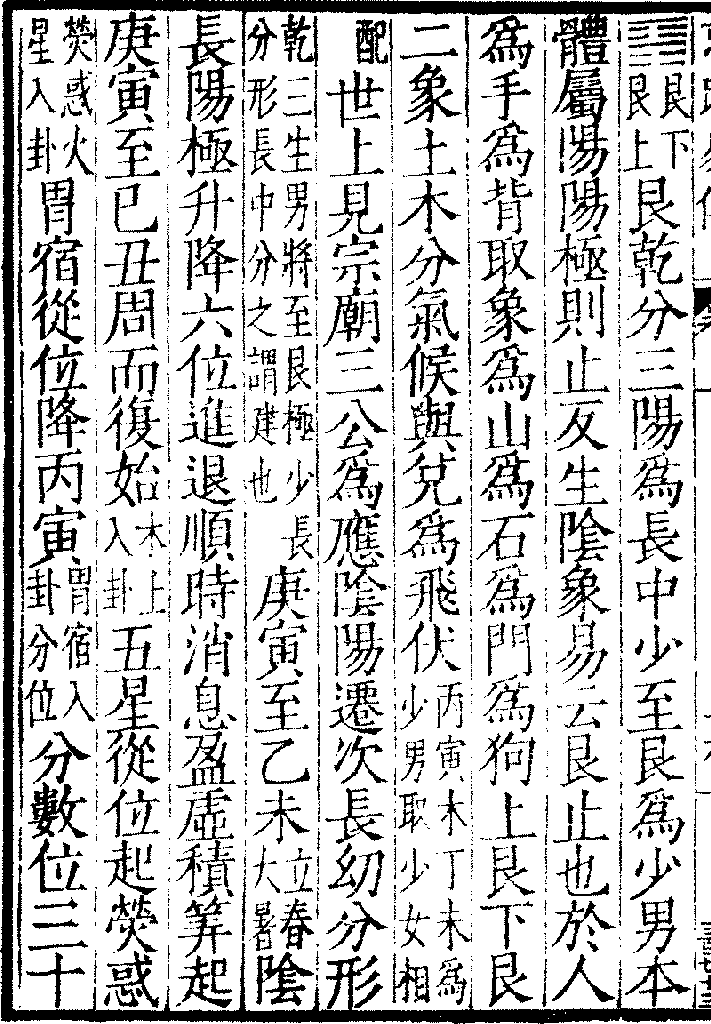 ䷳艮下艮上艮乾分三陽爲長中少至艮爲少男本
體屬陽陽極則止反生陰象易云艮止也於人
爲手爲背取象爲山爲石爲門爲狗上艮下艮
二象土木分氣候與兌爲飛伏丙寅木丁未爲少男取少女相
配世上見宗廟三公爲應陰陽遷次長幼分形
乾三生男將至艮極少長分形長中分之謂建也庚寅至乙未立春大暑陰
長陽極升降六位進退順時消息盈虛積筭起
庚寅至已丑周而復始木上入卦五星從位起熒惑
熒惑火星入卦胃宿從位降丙寅胃宿入卦分位分數位三十